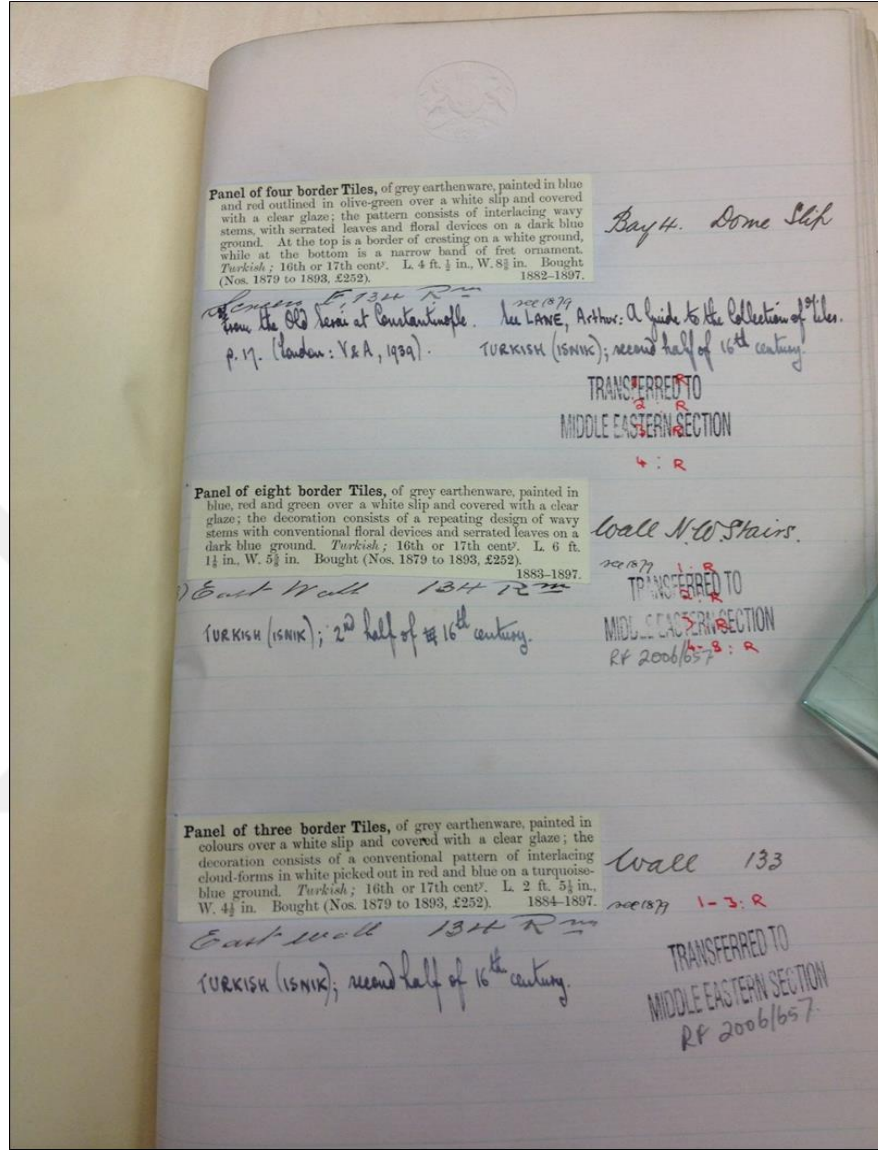 Panel of four border Tiles, of grey earthenware, painted in blue
and red outlined in olive-green over a white slip and covered
with a clear glaze; the pattern consists of interlacing wavy
stems, with serrated leaves and floral devices on a dark blue
ground. At the top is a border of cresting on a white ground,
while at the bottom is a narrow band of fret ornament.
Turkish; 16th or 17th centy. L. 4 ft. ½ in., W. 8⅜ in. Bought
(Nos. 1879 to 1893, £252). 1882–1897.
Bay 4. Dome Slip
Screen F, 134 Rm
see 1879
from the Old Serai at Constantinople. See LANE, Arthur: A Guide to the Collection of Tiles.
p. 17. (London: V & A, 1939). TURKISH (ISNIK); second half of 16th century.
TRANSFERRED TO
MIDDLE EASTERN SECTION
1: R
2: R
3: R
4: R
Panel of eight border Tiles, of grey earthenware, painted in
blue, red and green over a white slip and covered with a clear
glaze; the decoration consists of a repeating design of wavy
stems with conventional floral devices and serrated leaves on a
dark blue ground. Turkish; 16th or 17th centy. L. 6 ft.
1½ in., W. 5⅜ in. Bought (Nos. 1879 to 1893, £252).
1883–1897.
Wall N-W Stairs.
see 1879
East Wall 134 Rm
TURKISH (ISNIK); 2nd half of 16th century.
TRANSFERRED TO
MIDDLE EASTERN SECTION
1: R
2: R
3: R
4-8: R
RF 2006/657
Panel of three border Tiles, of grey earthenware, painted in
colours over a white slip and covered with a clear glaze; the
decoration consists of a conventional pattern of interlacing
cloud-forms in white picked out in red and blue on a turquoise-
blue ground. Turkish; 16th or 17th centy. L. 2 ft. 5½ in.,
W. 4½ in. Bought (Nos. 1879 to 1893, £252). 1884–1897.
Wall 133
see 1879 1-3: R
East wall 134 Rm
TURKISH (ISNIK); second half of 16th century.
TRANSFERRED TO
MIDDLE EASTERN SECTION
RF 2006/657.